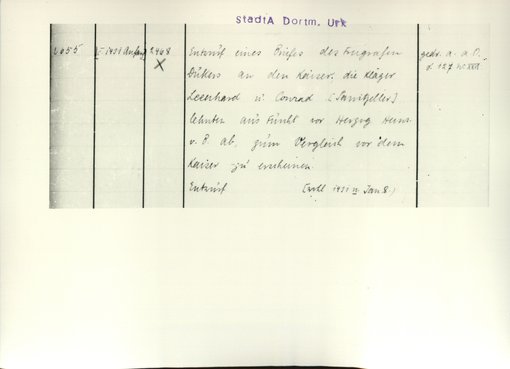 StadtA Dortm. Urk
2655 [– 1431 Anfang] 2468 Entwurf eines Briefes des Freigrafen gedr. a. a. O.
X Dükers an den Kaiser, die Kläger S. 127 No
Leverhard u. Conrad [Sanitzeller]
lehnten aus Furcht vor Herzog Heinr.
v. B. ab, zum Vergleich vor dem
Kaiser zu erscheinen.
Entwurf (1431 n Jan 8)